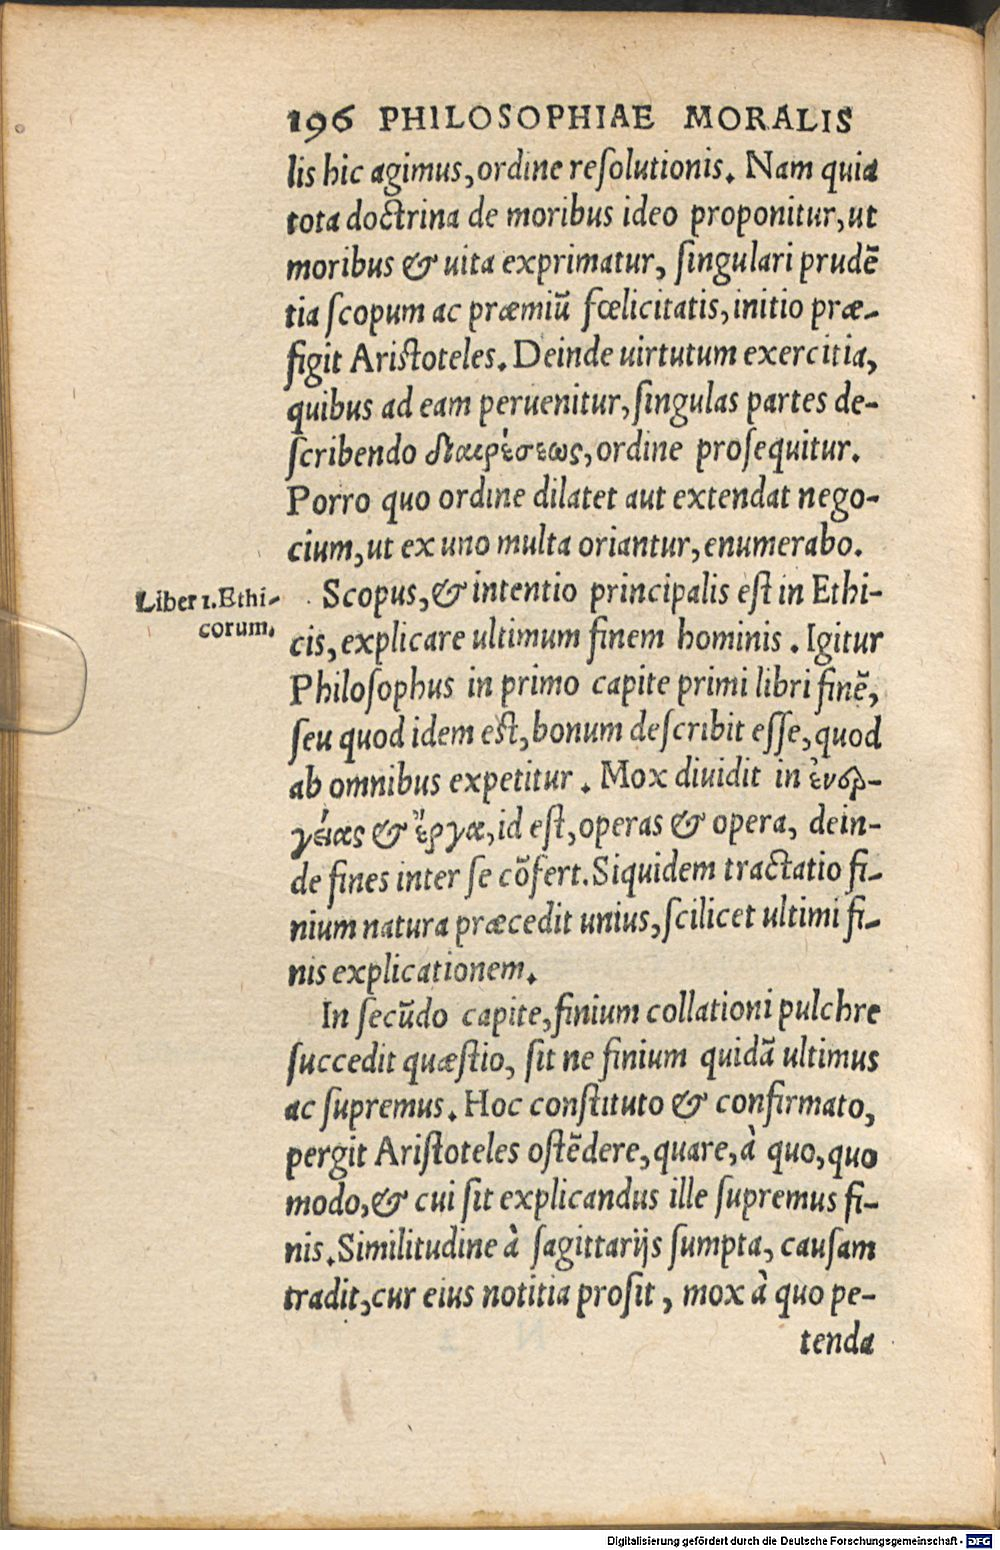 196 PHILOSOPHIAE MORALIS
lis hic agimus, ordine reſolutionis. Nam quia
tota doctrina de moribus ideo proponitur, ut
moribus & uita exprimatur, ſingulari prudē
tia ſcopum ac præmiū fœlicitatis, initio præ-
figit Ariſtoteles. Deinde uirtutum exercitia,
quibus ad eam peruenitur, ſingulas partes de-
ſcribendo διαιρέσεως, ordine proſequitur.
Porro quo ordine dilatet aut extendat nego-
cium, ut ex uno multa oriantur, enumerabo.
Liber 1. Ethi-
corum.
Scopus, & intentio principalis eſt in Ethi-
cis, explicare ultimum finem hominis. Igitur
Philoſophus in primo capite primi libri finē,
ſeu quod idem eſt, bonum deſcribit eſſe, quod
ab omnibus expetitur. Mox diuidit in ἐνερ-
γείας & ἔργα, id eſt, operas & opera, dein-
de fines inter ſe cōfert. Siquidem tractatio fi-
nium natura præcedit unius, ſcilicet ultimi fi-
nis explicationem.
In ſecūdo capite, finium collationi pulchre
ſuccedit quæſtio, ſit ne finium quidā ultimus
ac ſupremus. Hoc conſtituto & confirmato,
pergit Ariſtoteles oſtēdere, quare, à quo, quo
modo, & cui ſit explicandus ille ſupremus fi-
nis. Similitudine à ſagittarijs ſumpta, cauſam
tradit, cur eius notitia proſit, mox à quo pe-
tenda
Digitalisierung gefördert durch die Deutsche Forschungsgemeinschaft - DFG